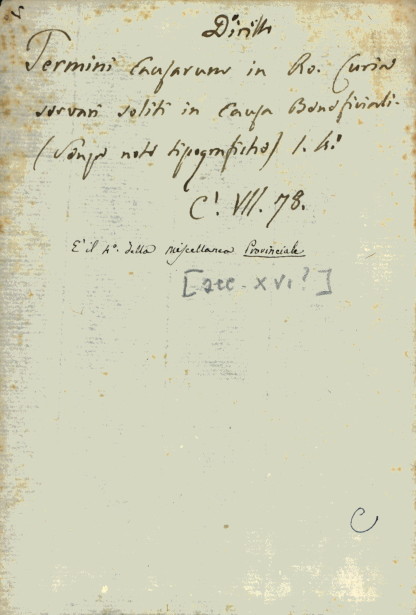 5
Diritto
Termini Causarum in Ro. Curia
servari soliti in Causa Beneficiali.
(Senza note tipografiche) 1. 4.º
C!. VII. 78.
E' il 4º. della miscellanea Provinciale
[sec. XVI?]
C